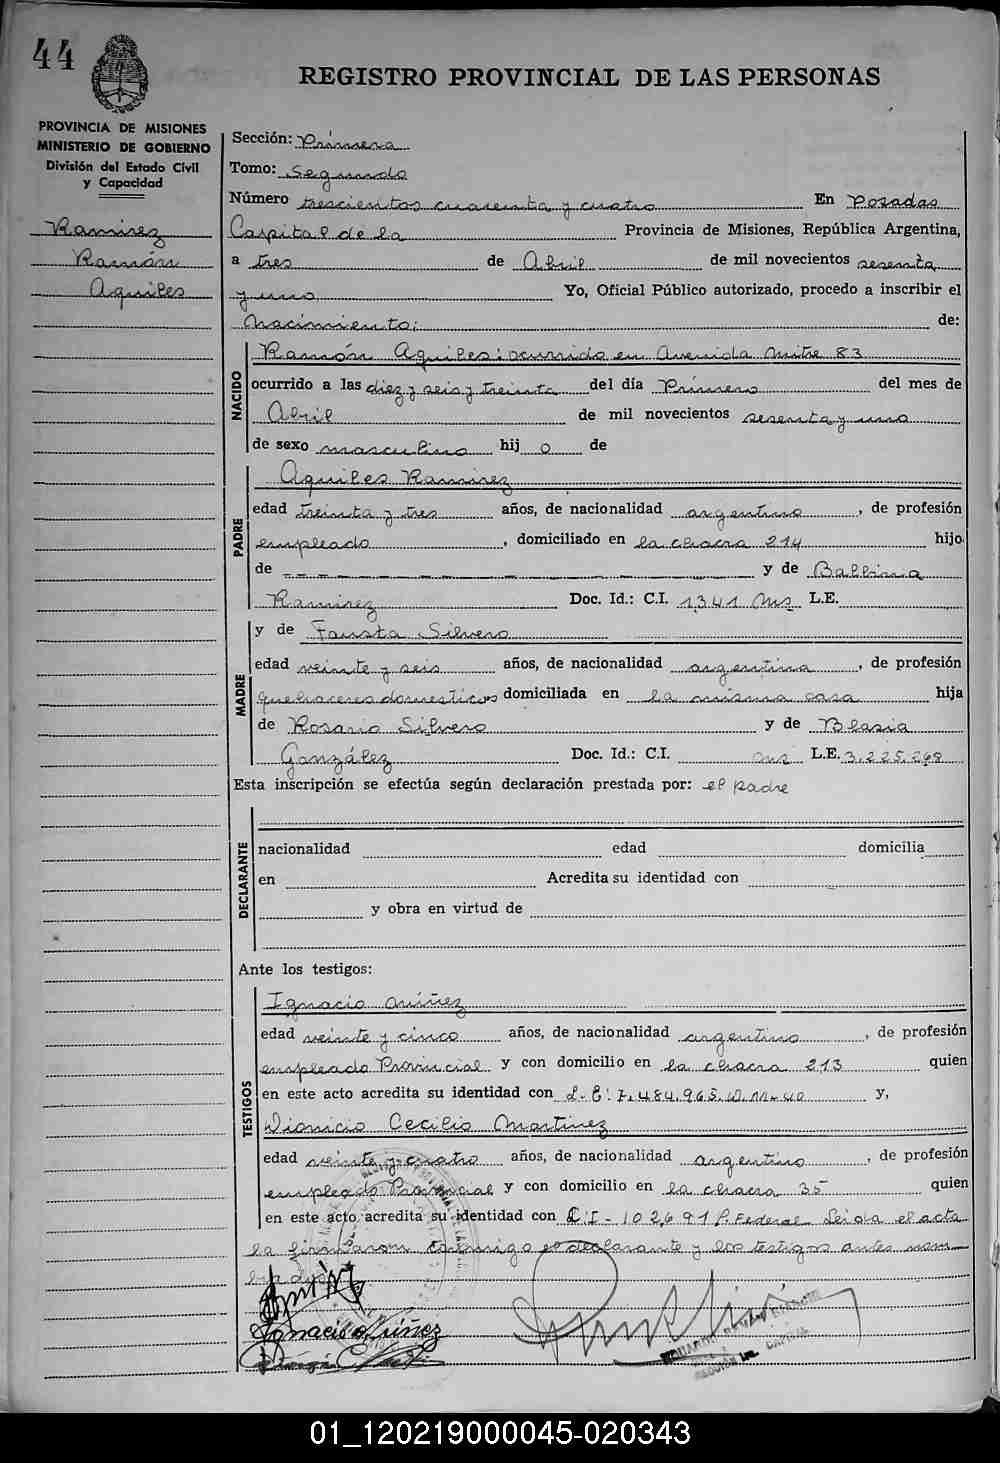 44
REGISTRO PROVINCIAL DE LAS PERSONAS
PROVINCIA DE MISIONES
MINISTERIO DE GOBIERNO
División del Estado Civil
y Capacidad
Ramirez
Ramón
Aquiles
Sección: Primera
Tomo: Segundo
Número trescientos cuarenta y cuatro En Posadas
Capital de la Provincia de Misiones, República Argentina,
a tres de Abril de mil novecientos sesenta
y uno Yo, Oficial Público autorizado, procedo a inscribir el
Nacimiento: de:
NACIDO
Ramón Aquiles: ocurrido en Avenida Mitre 83
ocurrido a las diez y seis y treinta del día Primero del mes de
Abril de mil novecientos sesenta y uno
de sexo masculino hij o de
PADRE
Aquiles Ramirez
edad treinta y tres años, de nacionalidad argentino, de profesión
empleado, domiciliado en la chacra 214 hijo
de - - - y de Balbina
Ramirez Doc. Id.: C.I. 1341 Mns L.E.
MADRE
y de Fausta Silvero
edad veinte y seis años, de nacionalidad argentina, de profesión
quehaceres domesticos domiciliada en la misma casa hija
de Rosario Silvero y de Blasia
González Doc. Id.: C.I. L.E. 3.225.268
Esta inscripción se efectúa según declaración prestada por: el padre
DECLARANTE
nacionalidad edad domicilia
en Acredita su identidad con
y obra en virtud de
Ante los testigos:
TESTIGOS
Ignacio Núñez
edad veinte y cinco años, de nacionalidad argentino, de profesión
empleado Provincial y con domicilio en la chacra 213 quien
en este acto acredita su identidad con L.E. 7.484.965.D.M-40 y,
Dionicio Cecilio Martinez
edad veinte y cuatro años, de nacionalidad argentino, de profesión
empleado Provincial y con domicilio en la chacra 35 quien
en este acto acredita su identidad con C.I- 102691 P. Federal Leida el acta
la firmaron conmigo el declarante y los testigos antes nom-
brados
Ignacio Núñez
01_120219000045-020343